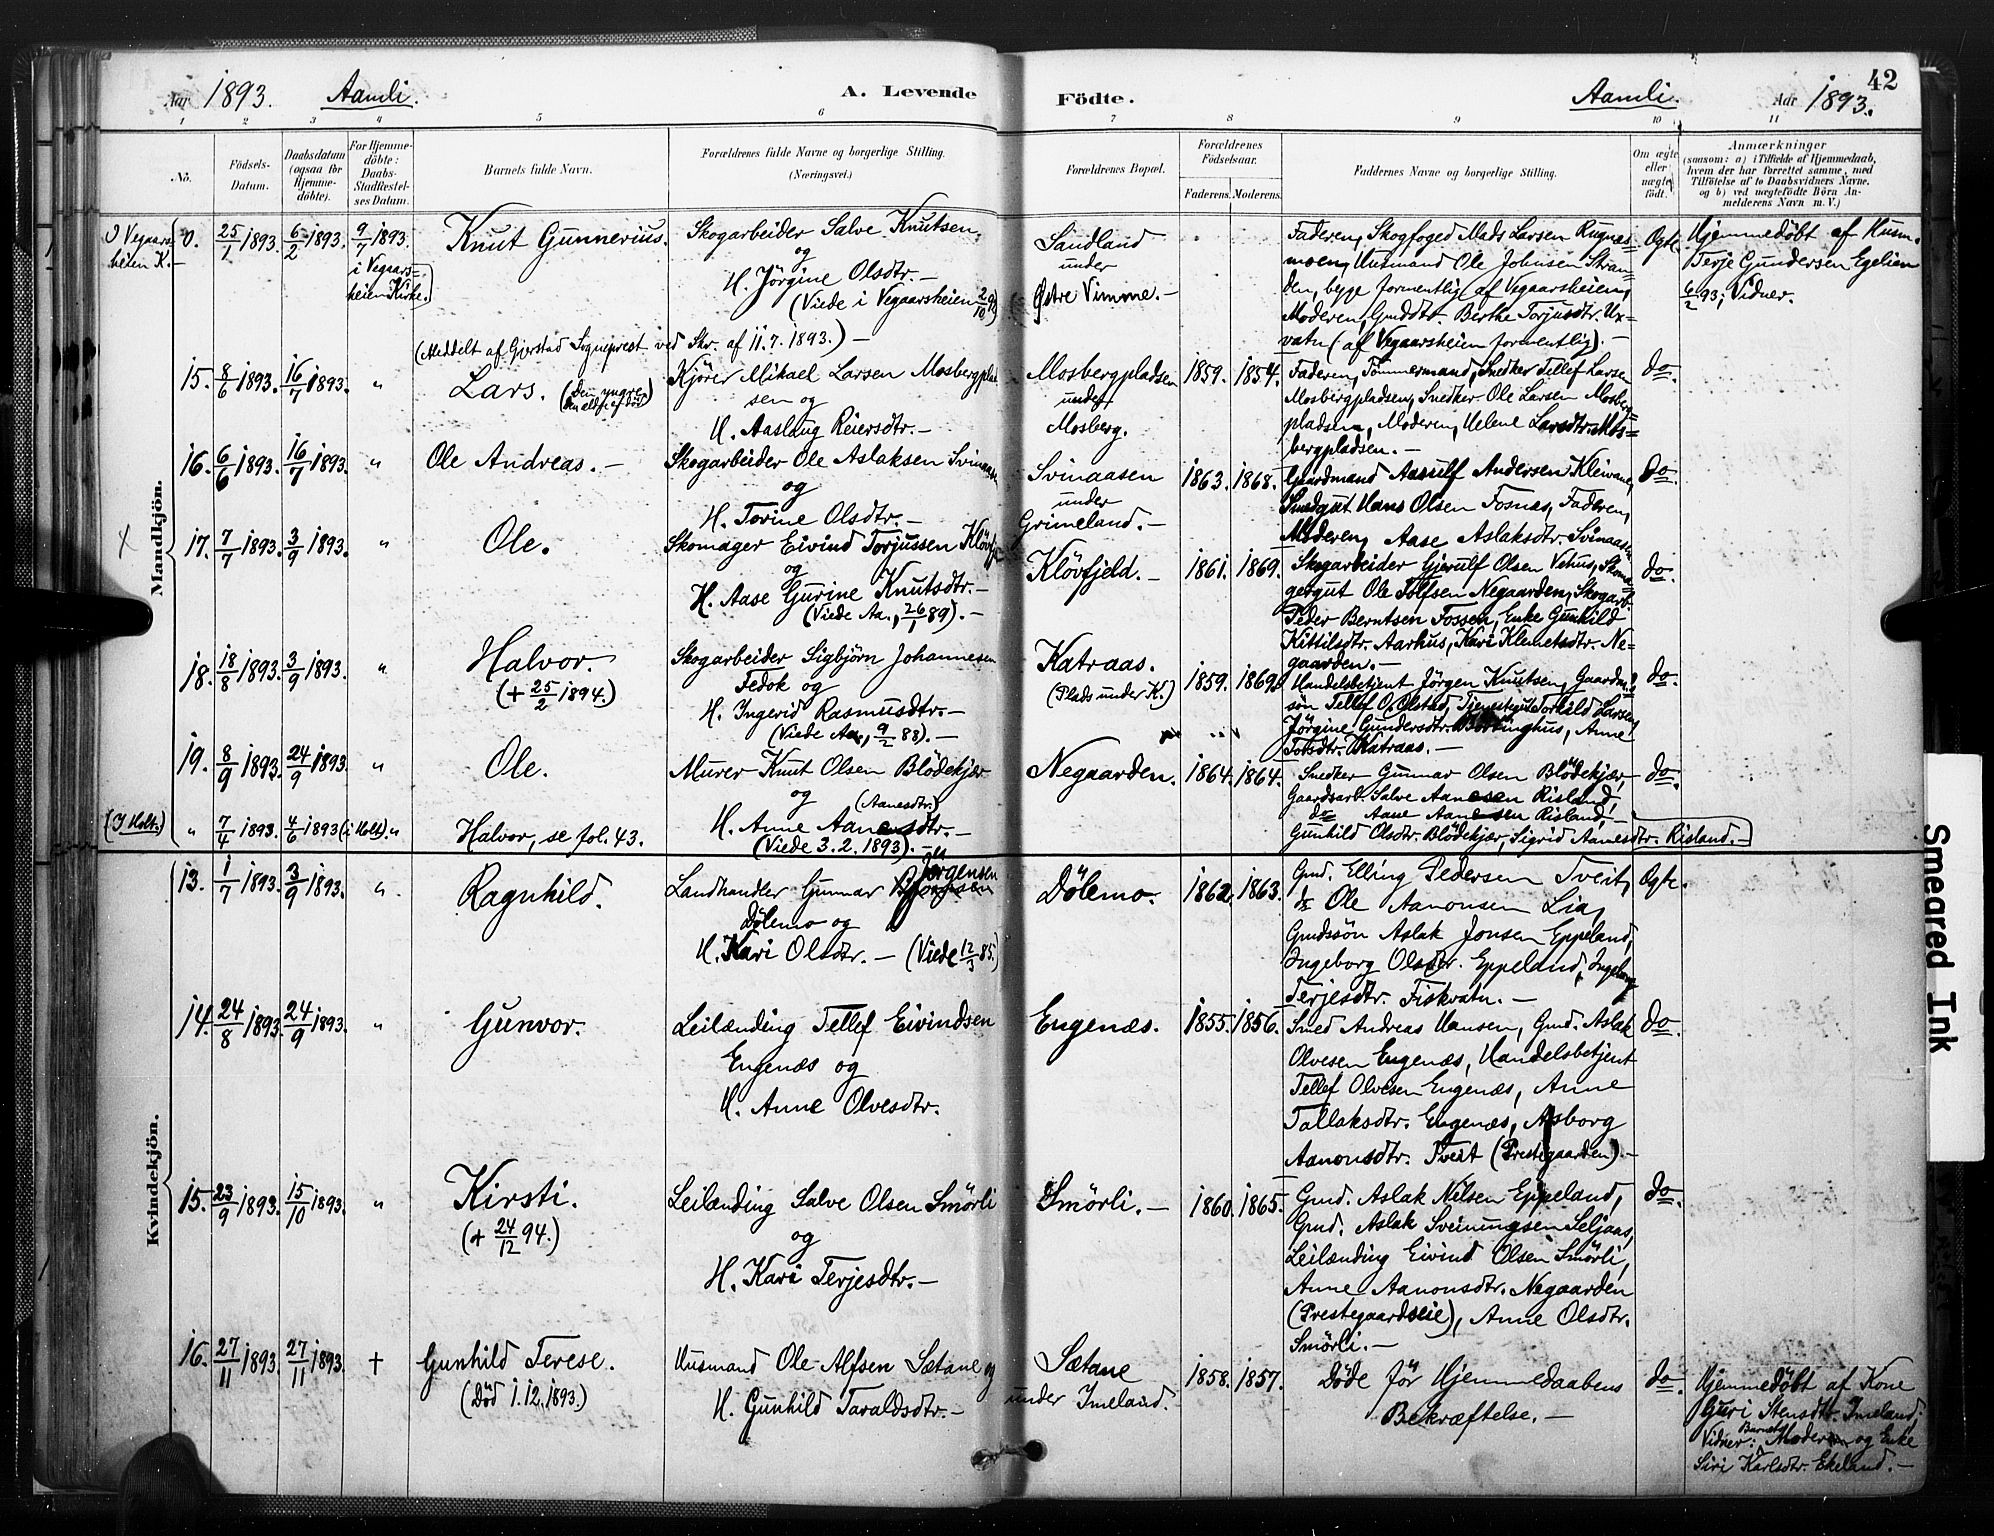 42
Aar 1893. Aamli. A. Levende Födte. Aamli. Aar 1893.
1 2 3 4 5 6 7 8 9 10 11
No.
Födsels-
Datum.
Daabsdatum
(ogsaa for
Hjemme-
döbte).
For Hjemme-
döbte:
Daabs-
Stadfæstel-
ses Datum.
Barnets fulde Navn.
Forældrenes fulde Navne og borgerlige Stilling.
(Næringsvei.)
Forældrenes Bopæl.
Forældrenes
Födselsaar.
Faderens. Moderens.
Faddernes Navne og borgerlige Stilling.
Om ægte
eller
uægte
født.
Anmærkninger
(saasom: a) i Tilfælde af Hjemmedaab,
hvem der har forrettet samme, med
Tilföielse af to Daabsvidners Navne,
og b) ved uægtefödte Börn An-
melderens Navn m. V.)
Mandkjön.
I Vegaars-
heien K.
0. 25/1 1893. 6/2 1893. 9/7 1893.
i Vegaars-
heien Kirke.
Knut Gunnerius.
Skogarbeider Salve Knutsen
og
H. Jörgine Olsdtr. —
(Viede i Vegaarsheien 2/10 92)
Sandland
under
Østre Vimme. —
Faderen, Skogfoged Mads Larsen Rugnæs-
moen, Husmand Ole Johnsen Stran-
den, begge formentlig af Vegaarsheien,
Moderen, Gmddtr. Berthe Torjusdtr. Ux-
vatn (af Vegaarsheien formentlig). —
Ægte
Hjemmedöbt af Husm.
Terje Gundersen Egelien
6/2 93; Vidner.
(Meddelt af Gjerstad Sogneprest ved Skr. af 11.7.1893.) —
15. 8/6 1893. 16/7 1893. "
Lars. (Den yngre,
den eldre er död)
Kjörer Mikael Larsen Mosbergplad-
sen og
H. Aaslaug Reiersdtr. —
Mosbergpladsen
under
Mosberg.
1859. 1854.
Faderen, Tömmermand, Snedker Tellef Larsen
Mosbergpladsen, Snedker Ole Larsen Mosberg-
pladsen, Moderen, Helene Larsdtr. Mos-
bergpladsen. —
do.
16. 6/6 1893. 16/7 1893. "
Ole Andreas. —
Skogarbeider Ole Aslaksen Svinaasen
og
H. Torine Olsdtr. —
Svinaasen
under
Grimeland. —
1863. 1868.
Gaardmand Aanulf Andersen Kleivane,
Smedgut Hans Olsen Fosnæs, Faderen,
Moderen, Aase Aslaksdtr. Svinaasen
do.
17. 7/7 1893. 3/9 1893. "
Ole.
Skomager Eivind Torjussen Klövfj.
og
H. Aase Gurine Knutsdtr. —
(Viede Aa., 26/1 89). —
Klövfjeld. —
1861. 1869.
Skogarbeider Gjerulf Olsen Vehus, Skoma-
gergut Ole Tolfsen Negaarden, Skogarb.
Peder Berntsen Fossen, Enke Gunhild
Kittilsdtr. Aarhus, Kari Klemetsdtr. Ne-
gaarden. —
do.
18. 18/8 1893. 3/9 1893. "
Halvor.
(+ 25/2 1894.)
Skogarbeider Sigbjörn Johannesen
Fedok og
H. Ingerid Rasmusdtr. —
(Viede Aa., 9/2 88). —
Katraas.
(Plads under K.)
1859. 1869.
Handelsbetjent Jörgen Knutsen, Gaardm.-
sön Tellef O. Olstad, Tjenestegut Torkild Larsen,
Jörgine Gundersdtr. Anne
Tolfsdtr. Katraas. —
do.
19. 8/9 1893. 24/9 1893. "
Ole.
Murer Knut Olsen Blödekjær
og (Aanesdtr.)
H. Anne Aanensdtr. —
(Viede 3.2.1893). —
Negaarden.
1864. 1864.
Snedker Gunnar Olsen Blödekjær,
Gaardsarb. Salve Aanesen Risland,
do Aane Aanesen Risland,
Gunhild Olsdtr. Blödekjær, Sigrid Aanesdtr. Risland. —
do.
(I Holt.) " 7/4 1893. 4/6 1893 (i Holt). "
Halvor, se fol. 43.
Kvindekjön.
13. 1/7 1893. 3/9 1893. "
Ragnhild.
Landhandler Gunnar Jörgensen
Dölemo og
H. Kari Olsdtr. — (Viede 12/3 85.)
Dölemo.
1862. 1863.
Gmd. Elling Pedersen Tveit,
do Ole Aanonsen Lia,
Gmdssön Aslak Jonsen Eppeland,
Ingeborg Olsdtr. Eppeland, Ingeborg
Terjesdtr. Fiskvatn. —
Ægte.
14. 24/8 1893. 24/9 1893. "
Gunvor.
Leilænding Tellef Eivindsen
Engenæs og
H. Anne Olvesdtr.
Engenæs.
1855. 1856.
Smed Andreas Hansen, Gmd. Aslak
Olvesen Engenæs, Handelsbetjent
Tellef Olvesen Engenæs, Anne
Tallaksdtr. Engenæs, Asborg
Aanonsdtr. Tveit (Prestegaarden). —
do.
15. 23/9 1893. 15/10 1893. "
Kirsti.
(+ 24/12 94.)
Leilænding Salve Olsen Smörli
og
H. Kari Terjesdtr. —
Smörli. —
1860. 1865.
Gmd. Aslak Nilsen Eppeland,
Gmd. Aslak Sveinungsen Seljaas,
Leilænding Eivind Olsen Smörli,
Anne Aanonsdtr. Negaarden
(Prestegaardseie), Anne Olsdtr.
Smörli. —
do.
16. 27/11 1893. 27/11 1893. †
Gunhild Terese.
(Död 1.12.1893.)
Husmand Ole Alfsen Sætane og
H. Gunhild Taraldsdtr. —
Sætane
under Imeland.
1858. 1857.
Döde för Hjemmedaabens
Bekræftelse. —
do.
Hjemmedöbt af Kone
Guri Stensdtr. Imeland;
Vidner: Barnets Moder og Enke
Siri Karlsdtr. Ekeland. —
Smeared Ink